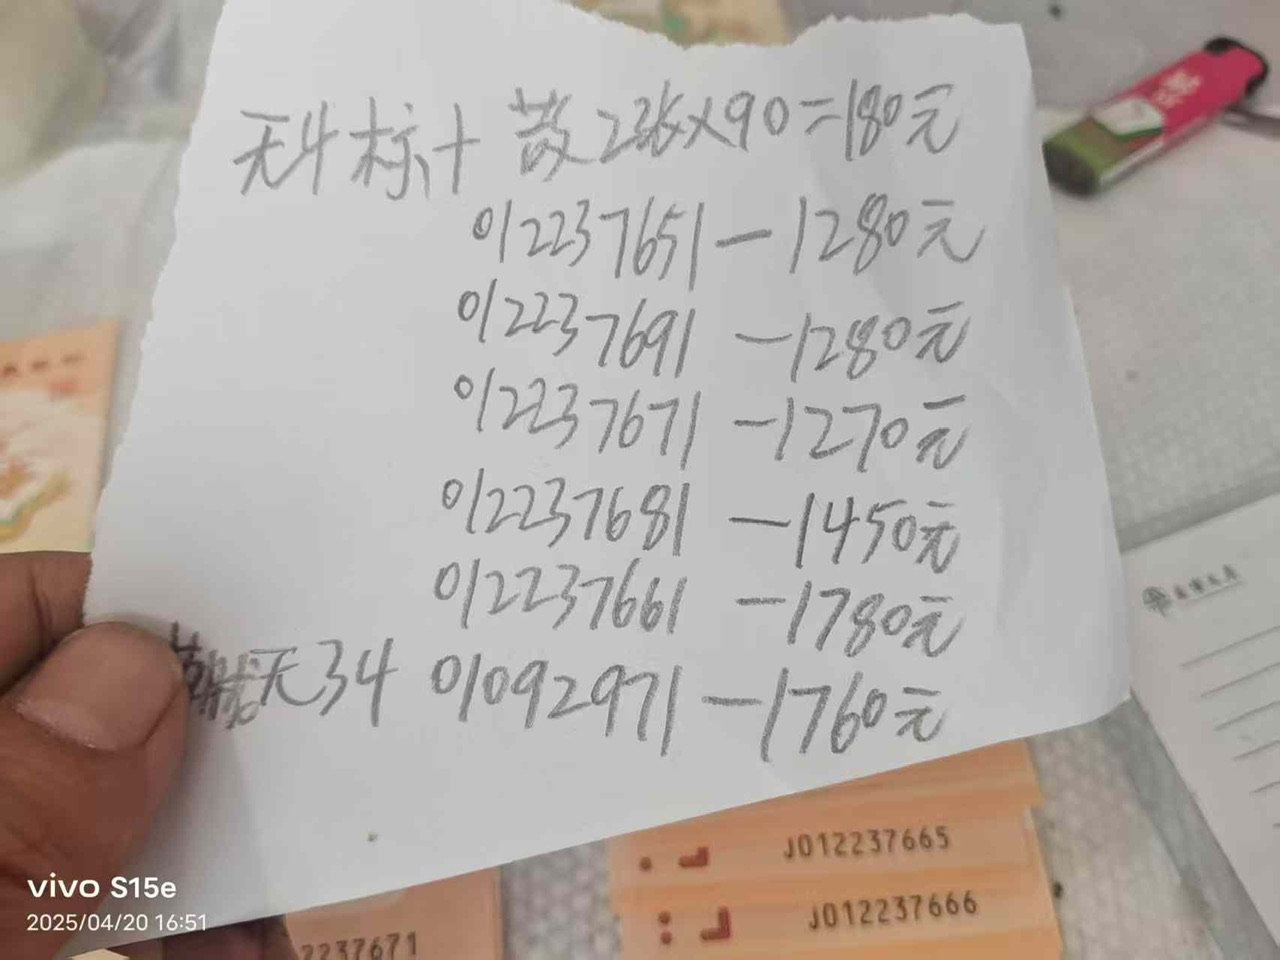 无4标十 散2张×90=180元
012237651—1280元
012237691—1280元
012237671—1270元
012237681—1450元
012237661—1780元
无34 01092971—1760元
J012237665
J012237666
2237671
vivo S15e
2025/04/20 16:51